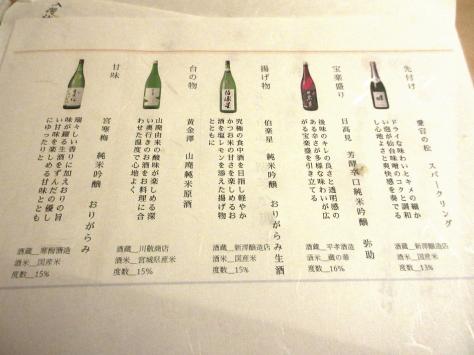 先付け
愛宕の松 スパークリング
ドライな味わいとキメの細か
い泡が仙台味噌のコクと調和
し心地よさと爽快感を奏でる
酒蔵__新澤醸造店
酒米__国産米
度数__13%
宝楽盛り
日高見 芳醇辛口純米吟醸 弥助
後味のキレの良さと透明感の
ある辛さが多様な味わいが広
がる宝楽盛りを引き立てる
酒蔵__平孝酒造
酒米__蔵の華
度数__16%
揚げ物
伯楽星 純米吟醸 おりがらみ生酒
究極の食中酒を目指し軽やか
かつお米の甘さを楽しめるお
酒を塩レモンを添えた揚げ物
とともに
酒蔵__新澤醸造店
酒米__国産米
度数__15%
台の物
黄金澤 山廃純米原酒
山廃由来の酸味が楽しめる深
い奥行きのお酒をお料理に合
わせた温度で心地よく
酒蔵__川敬商店
酒米__宮城県産米
度数__15%
甘味
宮寒梅 純米吟醸 おりがらみ
瑞々しい香りに加えおりの旨
味が踊る生酒をずんだの優し
い甘味を楽しめる甘味ととも
にゆったりと
酒蔵__寒梅酒造
酒米__国産米
度数__15%